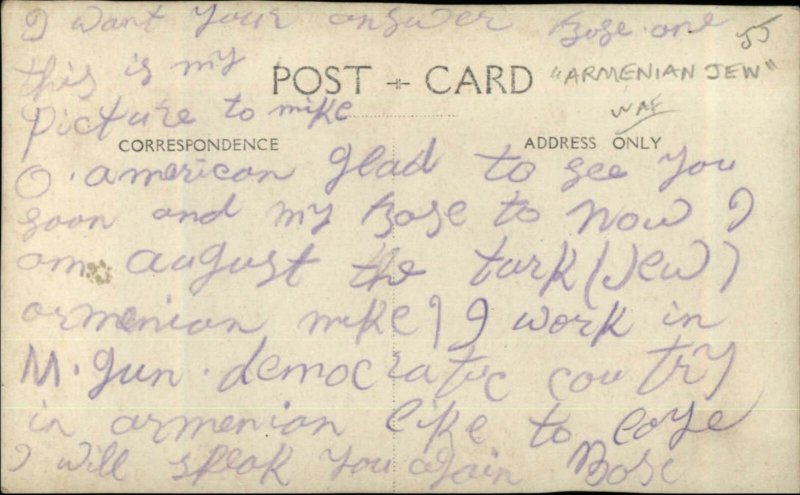 I want your answer Bose one
55
this is my
POST CARD
"ARMENIAN JEW"
picture to mike
CORRESPONDENCE
ADDRESS ONLY
O. american glad to see you
soon and my Bose to now I
am august the turk (Jew)
armenian mike I work in
M. gun. democratic coutry
in armenian like to
I will speak you again Bose